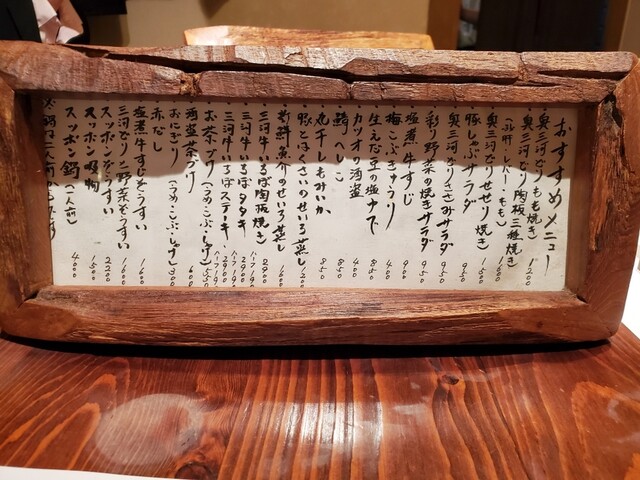 おすすめメニュー
・奥三河どりもも焼き 1200
・奥三河どり陶板三種焼き
(砂肝・レバー・もも) 1600
・奥三河どりせせり焼き 1500
・豚しゃぶサラダ 950
・奥三河どりささみサラダ 950
・彩り野菜の焼きサラダ 950
・塩煮牛すじ 900
・梅こぶきゅうり 400
・生えだ豆の塩ゆで 850
・カツオの酒盗 400
・鯖へしこ 850
・丸干しもみいか 850
・豚とはくさいのせいろ蒸し 1200
・新鮮魚介のせいろ蒸し 1600
・三河牛いちぼ陶板焼き 2900
・三河牛いちぼタタキ 2900
・三河牛いちぼステーキ 2900
・お茶づけ(うめ・こぶ・しゃけ) 550
・酒盗茶づけ 600
・おにぎり(うめ・こぶ・しゃけ) 300
・赤だし
・塩煮牛すじぞうすい 1600
・三河どりと野菜ぞうすい 1600
・スッポンぞうすい 2200
・スッポン吸物 1500
・スッポン鍋(一人前) 4000